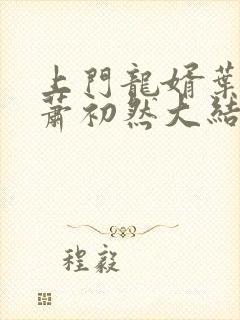 上門龍婿葉
蕭初然大結
程毅